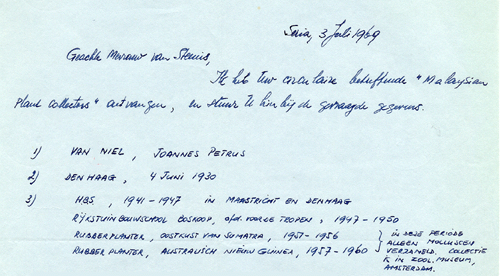 Sria, 3 Juli 1969
Geachte Mevrouw van Steenis,
Ik heb Uw circulaire betreffende "Malaysian
Plant Collectors" ontvangen, en stuur U hierbij de gevraagde gegevens.
1) VAN NIEL, JOANNES PETRUS
2) DEN HAAG, 4 JUNI 1930
3) HBS, 1941-1947 IN MAASTRICHT EN DEN HAAG
RIJKSTUINBOUWSCHOOL BOSKOOP, afd. VOOR DE TROPEN, 1947-1950
RUBBERPLANTER, OOSTKUST VAN SUMATRA, 1951-1956
RUBBERPLANTER, AUSTRALISCH NIEUW GUINEA, 1957-1960
IN DEZE PERIODE
ALLEEN MOLLUSCEN
VERZAMELD COLLECTIE
IN ZOOL. MUSEUM,
AMSTERDAM.